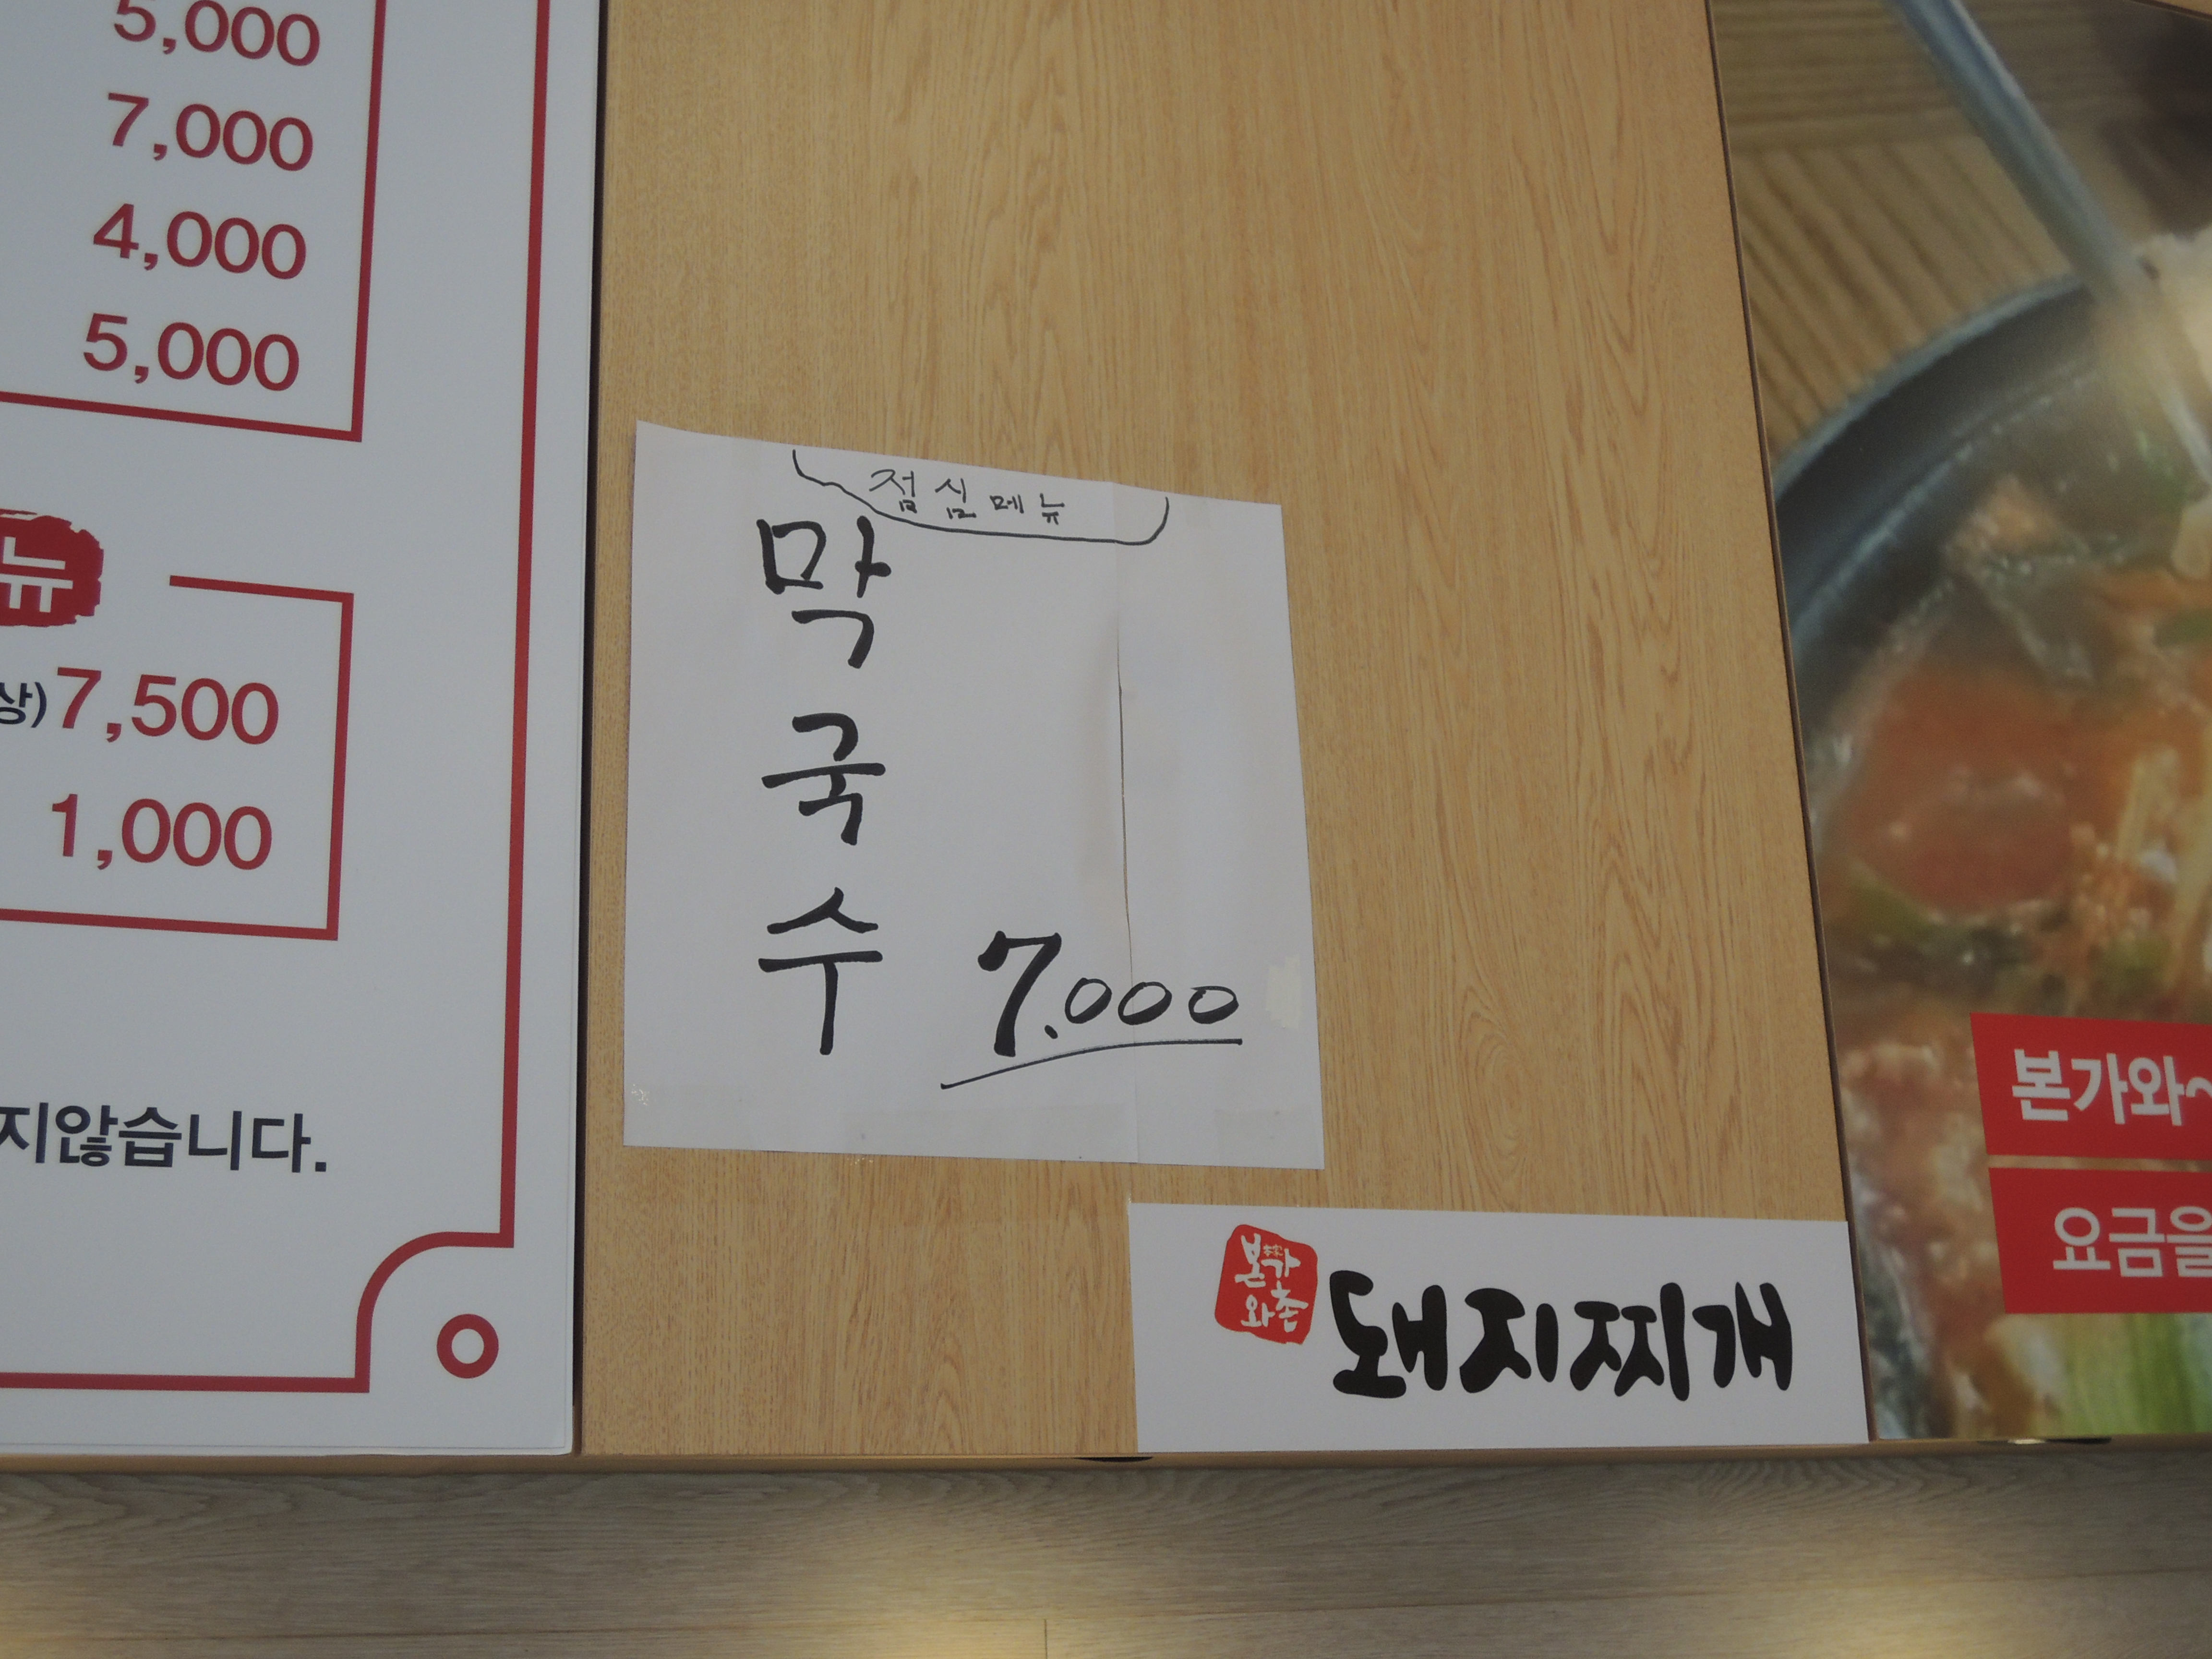 5,000
7,000
4,000
5,000
뉴
상)7,500
1,000
지않습니다.
점심메뉴
막
국
수 7.000
본가
와촌
돼지찌개
본가와
요금을